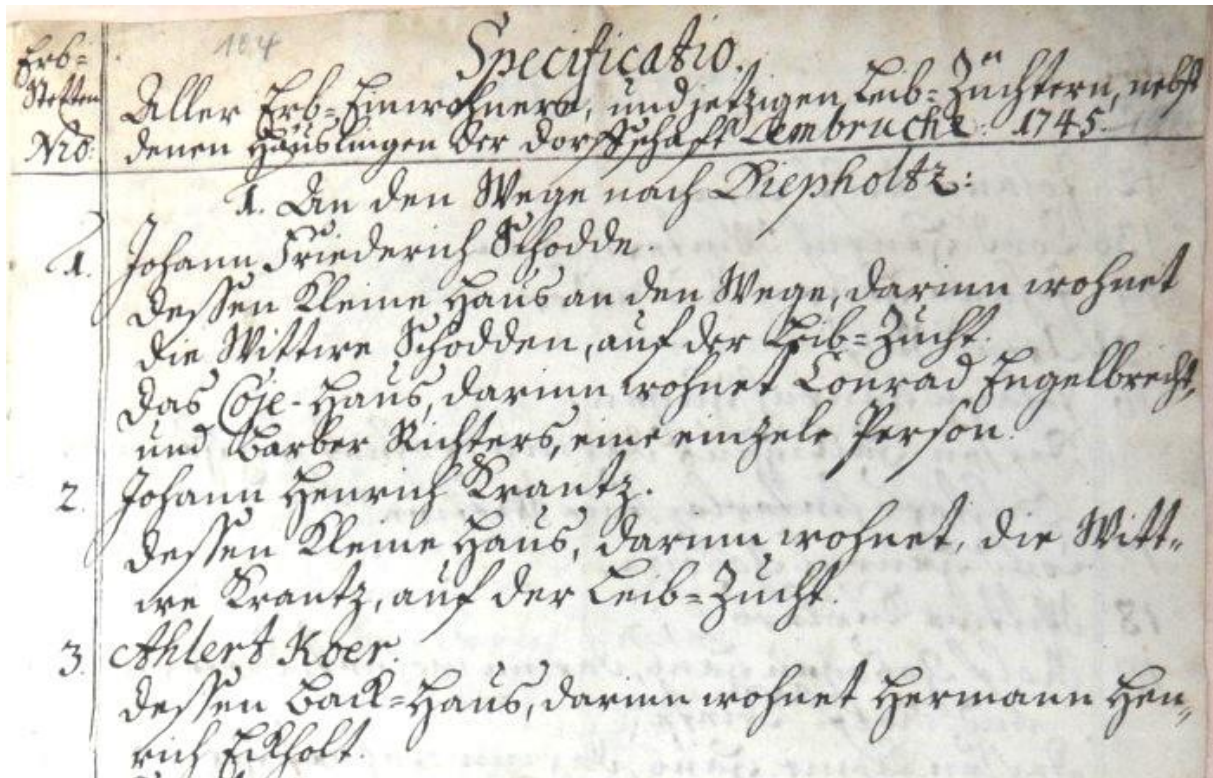 Erb=
Stetten
Nro:
104
Specificatio.
Aller Erb=Einwohnern, und jetzigen Leib=Züchtern, nebst
denen Häuslingen der Dorffschafft Lembruche: 1745.
1. An den Wege nach Diepholtz:
1. Johann Friederich Schodde.
dessen Kleine Haus an den Wege, darinn wohnet
die Wittwe Schodden, auf der Leib=Zucht.
Das Coje-Haus, darinn wohnet Conrad Engelbrecht,
und Barber Richters, eine einzele Person.
2. Johann Henrich Krantz.
dessen Kleine Haus, darinn wohnet, die Witt=
we Krantz, auf der Leib=Zucht.
3. Ahlert Koer.
dessen Back=Haus, darinn wohnet Hermann Hen=
rich Eckholt.